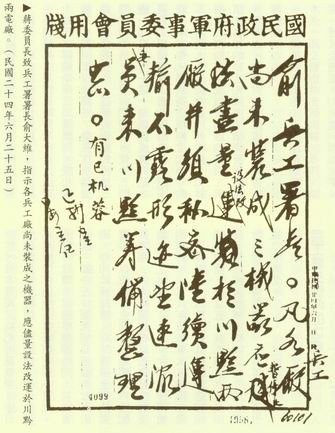 國民政府軍事委員會用牋
俞兵工署長。凡各廠
尚未裝成之機器
設法改
儘量運於川黔兩
廠并須秘密陸續運
輸不露形迹望速派
員來川黔籌備整理
。有巳机蓉
兵工
4099
▶蔣委員長致兵工署署長俞大維，指示各兵工廠尚未裝成之機器，應儘量設法改運於川黔
兩電廠。（民國二十四年六月二十五日）